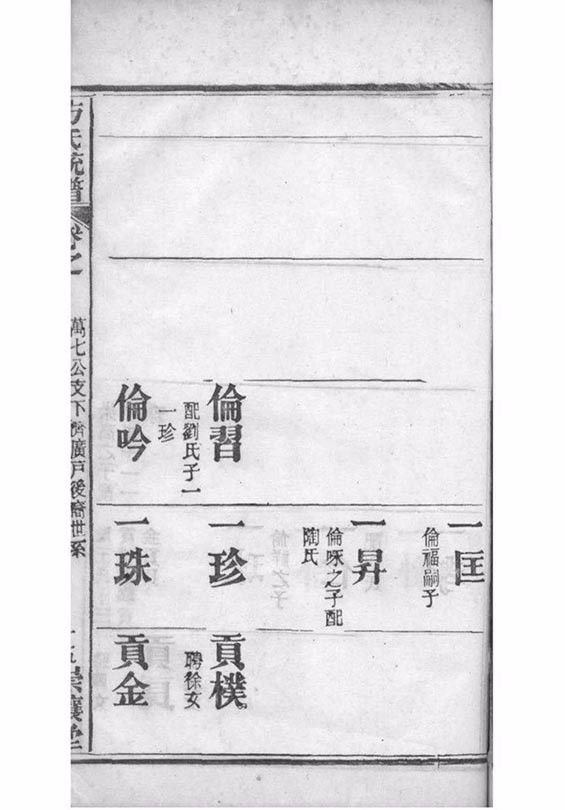 一匡
倫福嗣子
一昇
倫咏之子配
陶氏
倫習
配劉氏子一
一珍
一珍
貢樸
聘徐女
倫吟
一珠
貢金
方氏統譜
卷之
萬七公支下濟廣戶後裔世系